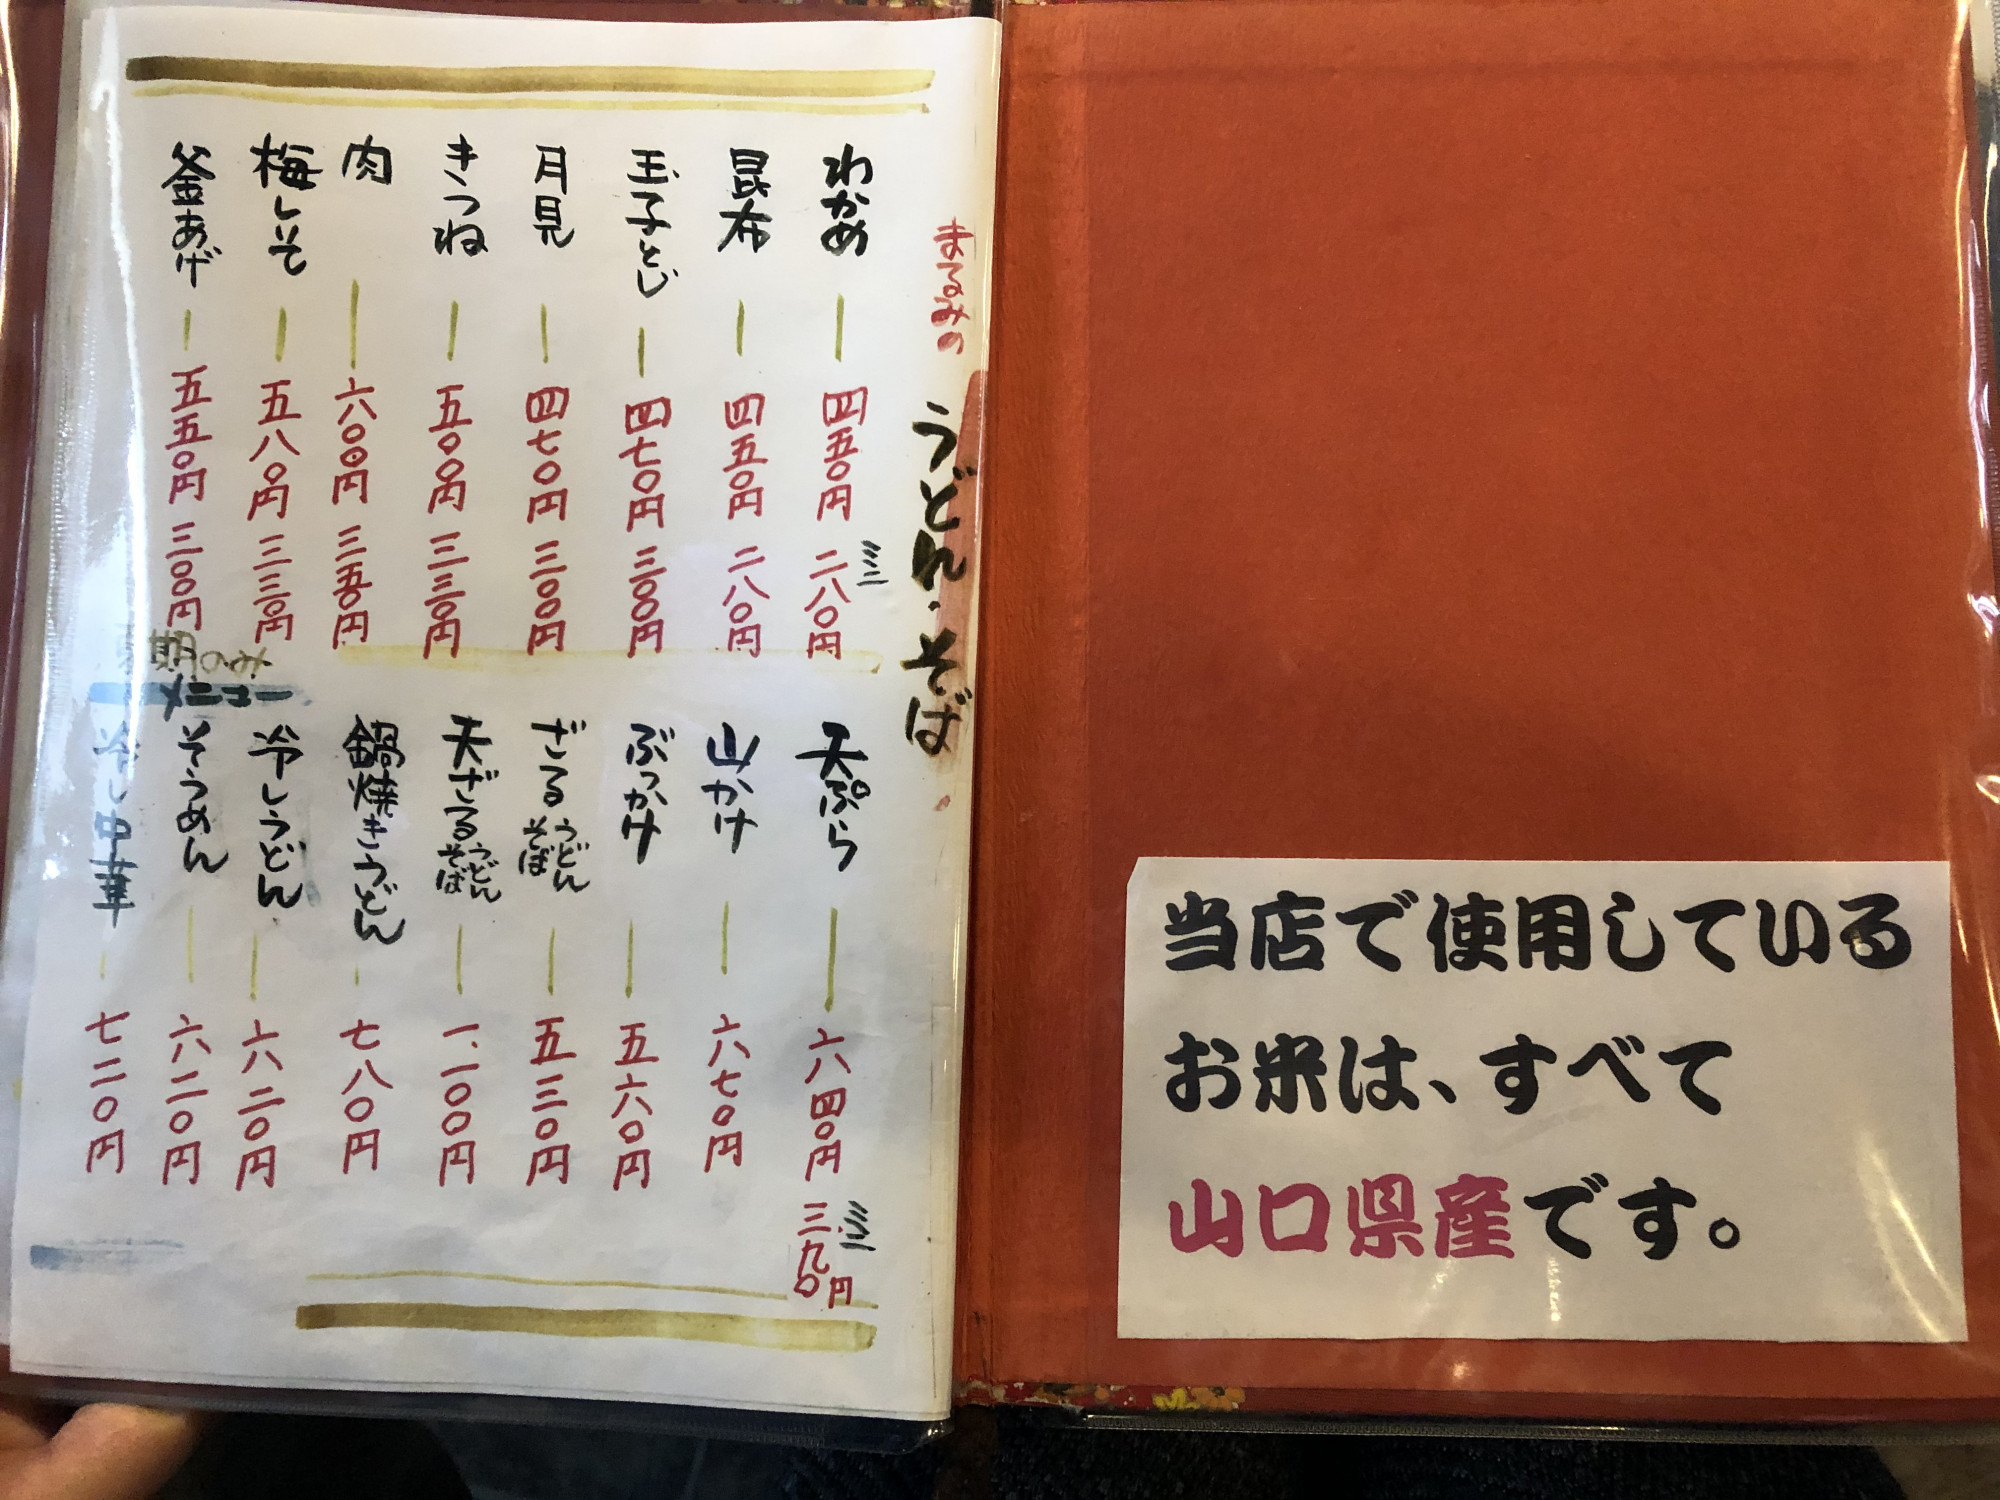 まるみの
うどん・そば
わかめ 四五〇円 ミニ 二八〇円
昆布 四五〇円 二八〇円
玉子とじ 四七〇円 三〇〇円
月見 四七〇円 三〇〇円
きつね 五〇〇円 三三〇円
肉 六〇〇円 三五〇円
梅しそ 五八〇円 三三〇円
釜あげ 五五〇円 三〇〇円
天ぷら 六四〇円 ミニ 三九〇円
山かけ 六七〇円
ぶっかけ 五六〇円
ざる うどん そば 五三〇円
天ざる うどん そば 一、一〇〇円
鍋焼きうどん 七八〇円
期のみ
メニュー
冷しうどん 六二〇円
そうめん 六二〇円
冷し中華 七二〇円
当店で使用している
お米は、すべて
山口県産です。